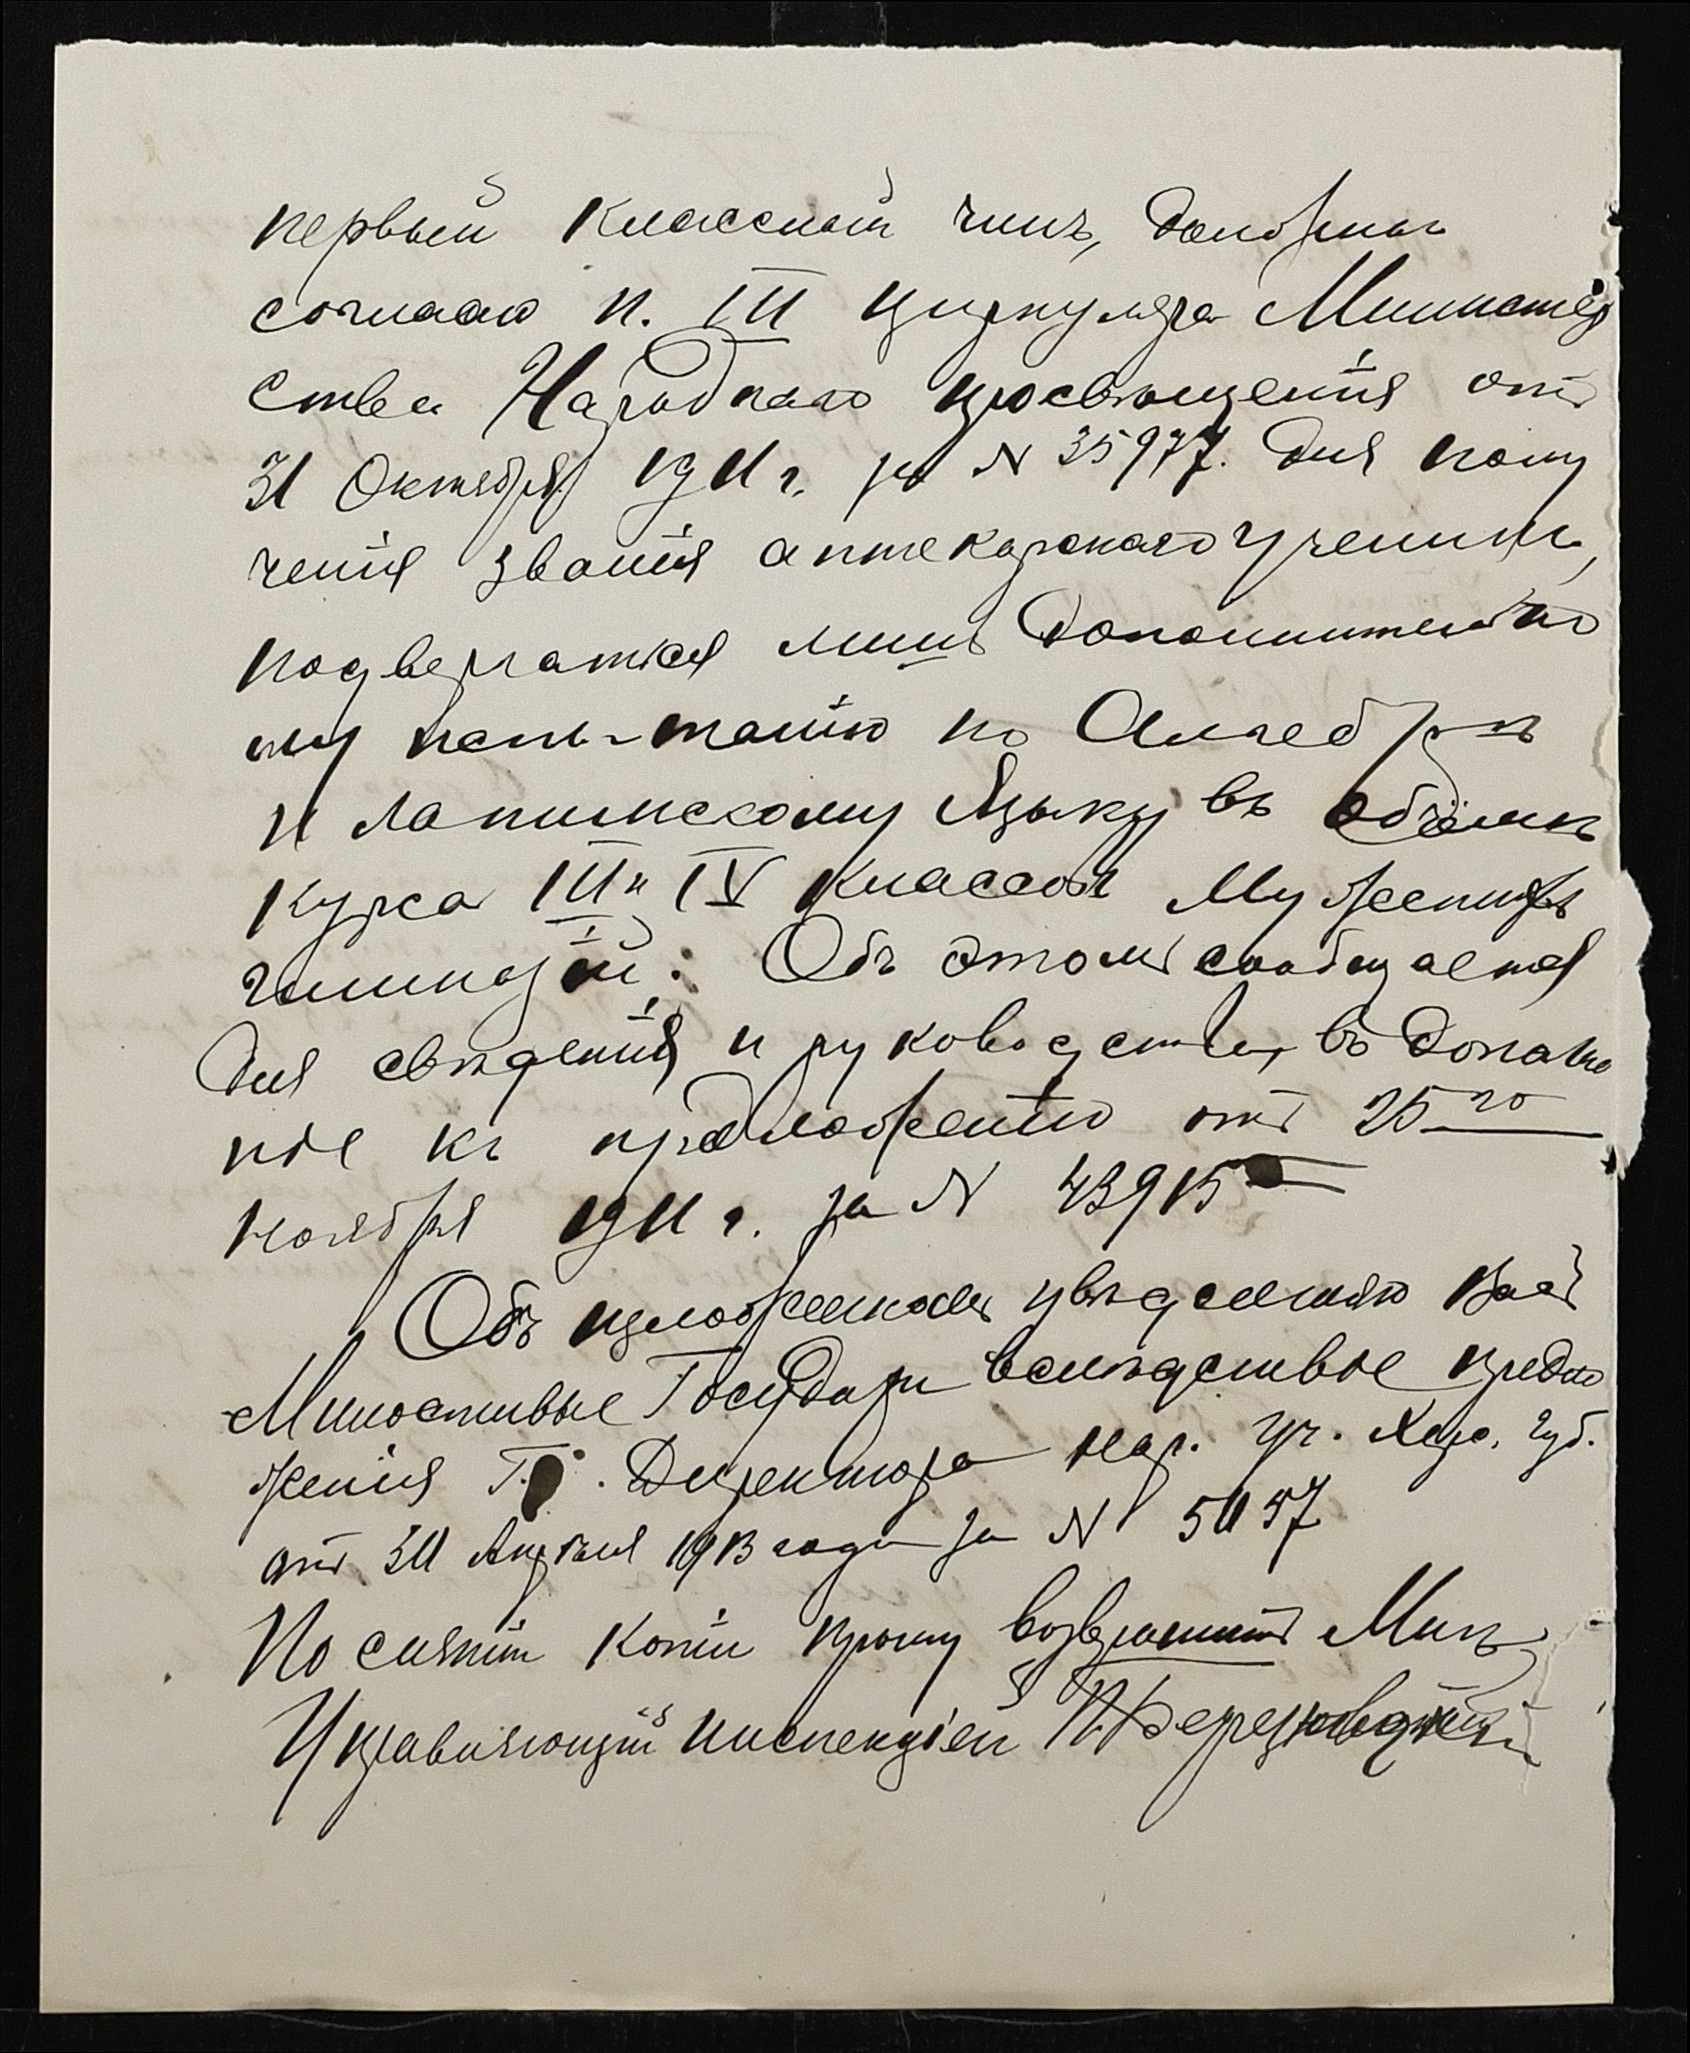 первый классный чинъ, должны
согласно п. III циркуляра Министер
ства Народнаго просвѣщенія отъ
31 Октября 1911 г. за N 35977. для полу
ченія званія аптекарскаго ученика,
подвергаться лишь дополнительно
му испытанію по Алгебрѣ
и латинскому языку въ объемѣ
курса III и IV классовъ Мужскихъ
гимназій. Объ этомъ сообщается
для свѣдѣнія и руководства, въ дополне
ніе къ предложенію отъ 25го
ноября 1911 г. за N 43915
Объ изложенномъ увѣдомляю Васъ
Милостивые Государи вслѣдствіе предло
женія Г. Директора нар. уч. Хер. губ.
отъ 30 Апрѣля 1913 года за N 5157
По снятіи копіи прошу возвратить Мнѣ
Управляющій инспекціей